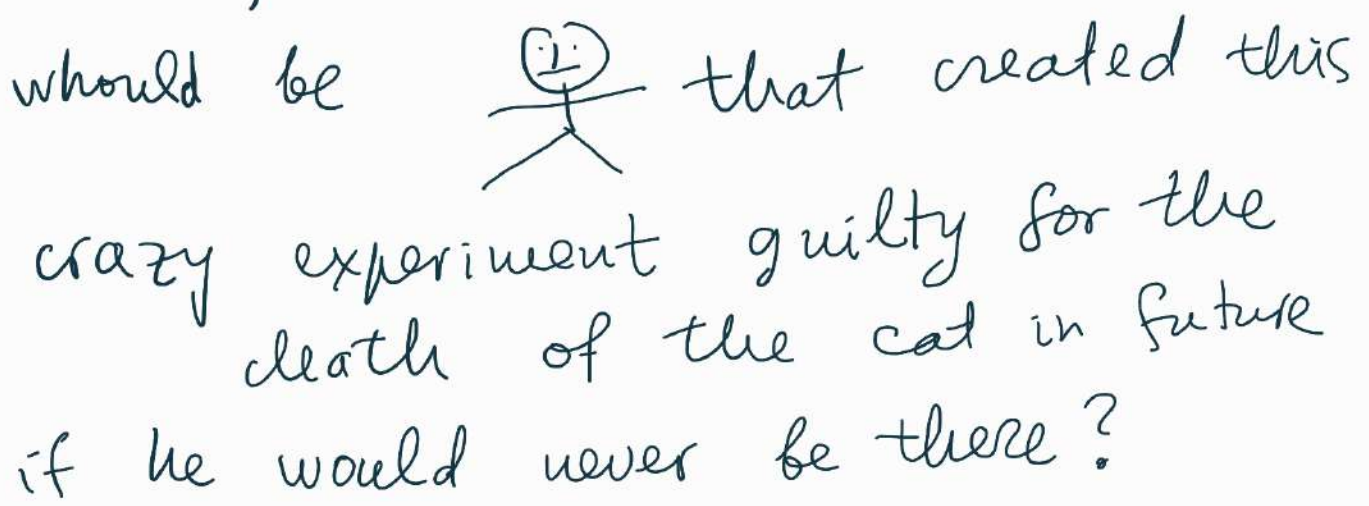 whould be that created this
crazy experiment guilty for the
death of the cat in future
if he would never be there?